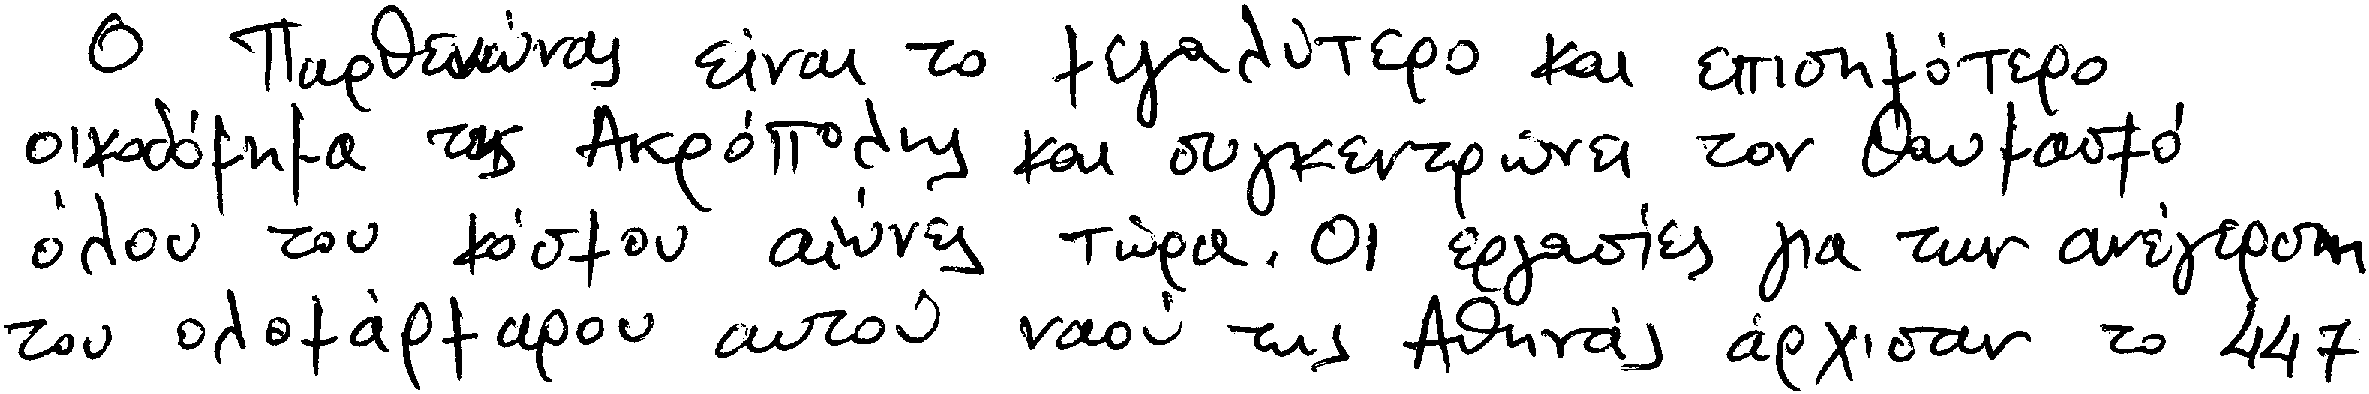 Ο Παρθενώνας είναι το μεγαλύτερο και επισημότερο
οικοδόμημα της Ακρόπολης και συγκεντρώνει τον θαυμασμό
όλου του κόσμου αιώνες τώρα. Οι εργασίες για την ανέγερση
του ολομάρμαρου αυτού ναού της Αθηνάς άρχισαν το 447